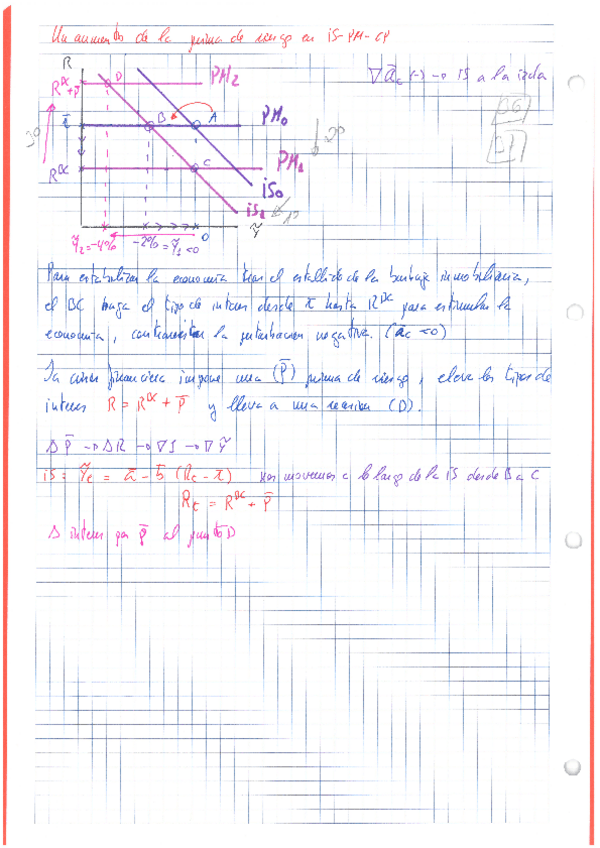 Un aumento de la prima de riesgo en iS-PM-CP
R
∇ āc (-) → iS a la izda
R^BC + p̄
D
PM2
B
A
PM0
R^BC
C
PM1
iS0
iS1
Ỹ
Ỹ2=-4%
-2% = Ỹ1 <0
0
3º
2º
1º
Para estabilizar la economía tras el estallido de la burbuja inmobiliaria,
el BC baja el tipo de interes desde r̄ hasta R^BC para estimular la
economía, contrarrestar la perturbacion negativa. (āc <0)
La crisis financiera impone una (p̄) prima de riesgo, eleva los tipos de
interes R = R^BC + p̄ y lleva a una recesion (D).
Δ p̄ → Δ R → ∇ I → ∇ Ỹ
iS: Ỹt = ā - b̄ (Rt - r̄) nos movemos a lo largo de la iS desde B a C
Rt = R^BC + p̄
Δ interes por p̄ al punto D